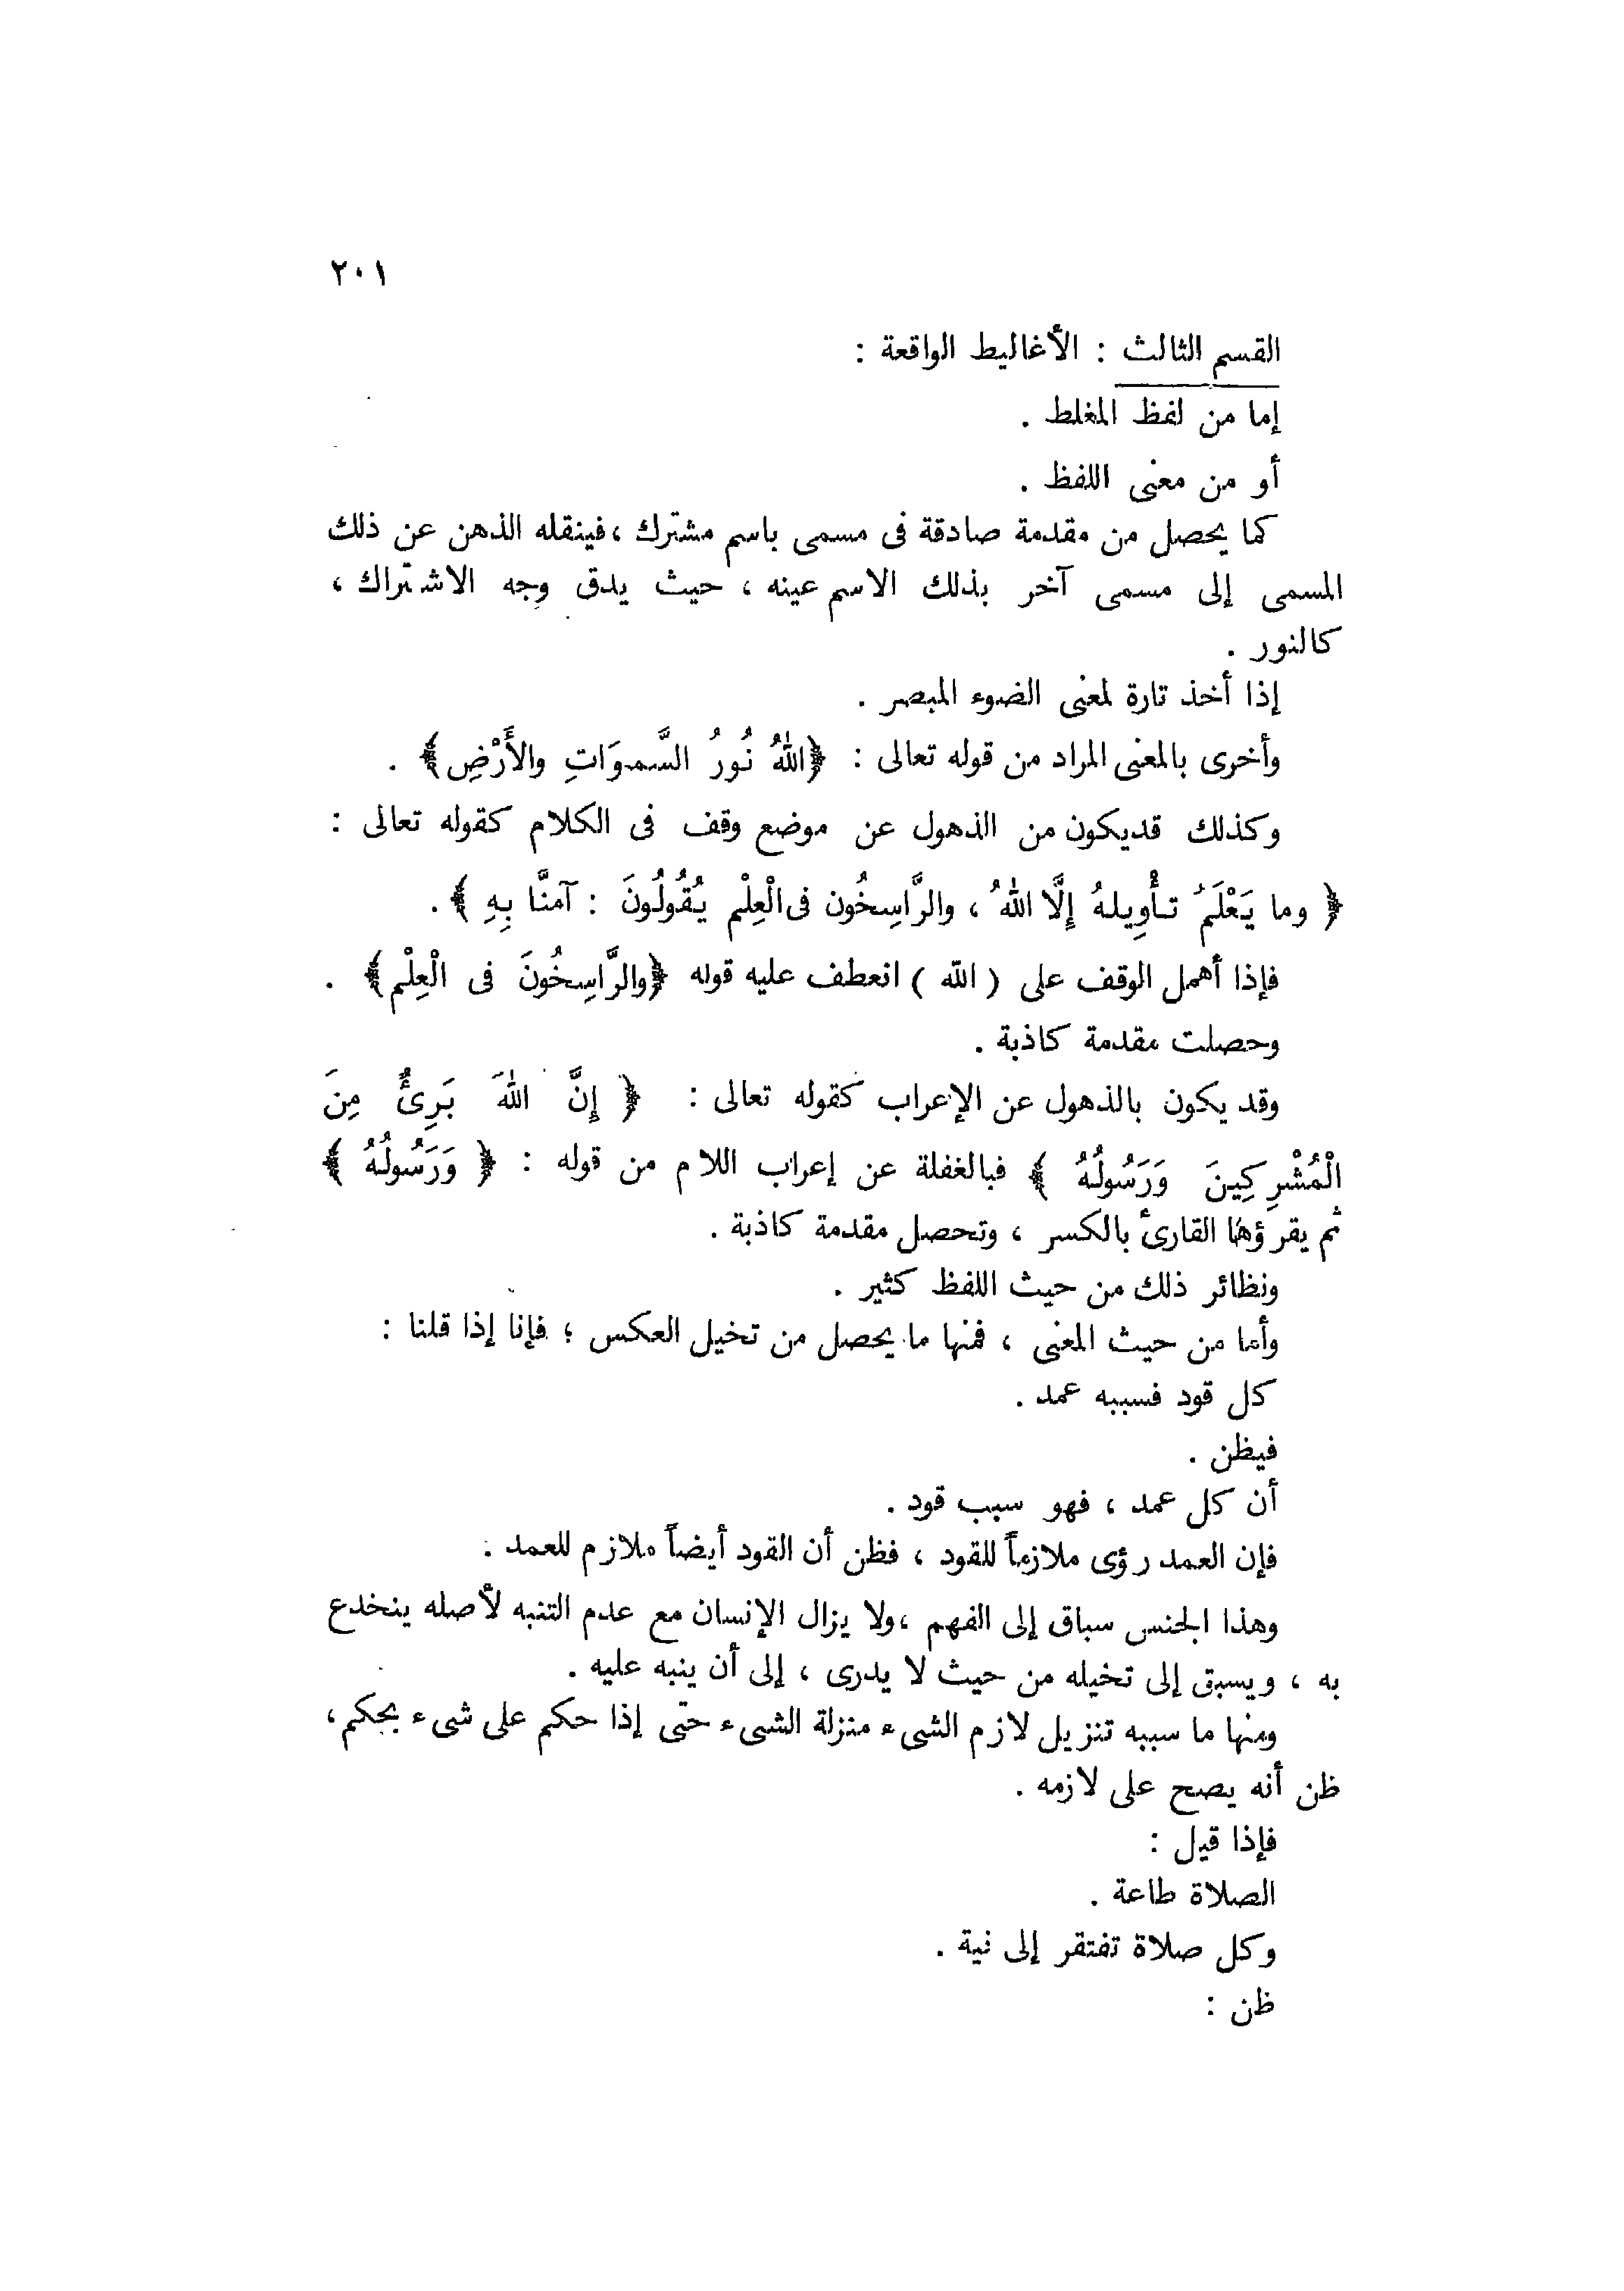 ٢٠١
القسم الثالث : الأغاليط الواقعة :
إما من لفظ المغلط .
أو من معنى اللفظ .
كما يحصل من مقدمة صادقة فى مسمى باسم مشترك ، فينقله الذهن عن ذلك
المسمى إلى مسمى آخر بذلك الاسم عينه ، حيث يدق وجه الاشتراك ،
كالنور .
إذا أخذ تارة لمعنى الضوء المبصر .
وأخرى بالمعنى المراد من قوله تعالى : ﴿اللهُ نُورُ السَّموَاتِ والأَرْضِ﴾ .
وكذلك قديكون من الذهول عن موضع وقف فى الكلام كقوله تعالى :
﴿ وما يَعْلَمُ تأْوِيلهُ إِلَّا اللهُ ، والرَّاسِخُون فى الْعِلْم يُقُولُونَ : آمنَّا بِهِ ﴾ .
فإذا أهمل الوقف على ( الله ) انعطف عليه قوله ﴿والرَّاسِخُونَ فى الْعِلْم﴾ .
وحصلت مقدمة كاذبة .
وقد يكون بالذهول عن الإعراب كقوله تعالى : ﴿ إِنَّ اللهَ بَرِئٌ مِنَ
الْمُشْرِكِينَ وَرَسُولُهُ ﴾ فبالغفلة عن إعراب اللام من قوله : ﴿ وَرَسُولُهُ ﴾
ثم يقرؤها القارئ بالكسر ، وتحصل مقدمة كاذبة .
ونظائر ذلك من حيث اللفظ كثير .
وأما من حيث المعنى ، فمنها ما يحصل من تخيل العكس ؛ فإنا إذا قلنا :
كل قود فسببه عمد .
فيظن .
أن كل عمد ، فهو سبب قود .
فإن العمد رؤى ملازماً للقود ، فظن أن القود أيضاً ملازم للعمد :
وهذا الجنس سباق إلى الفهم ، ولا يزال الإنسان مع عدم التنبه لأصله ينخدع
به ، ويسبق إلى تخيله من حيث لا يدرى ، إلى أن ينبه عليه .
ومنها ما سببه تنزيل لازم الشىء منزلة الشىء حتى إذا حكم على شىء بحكم ،
ظن أنه يصح على لازمه .
فإذا قيل :
الصلاة طاعة .
وكل صلاة تفتقر إلى نية .
ظن :